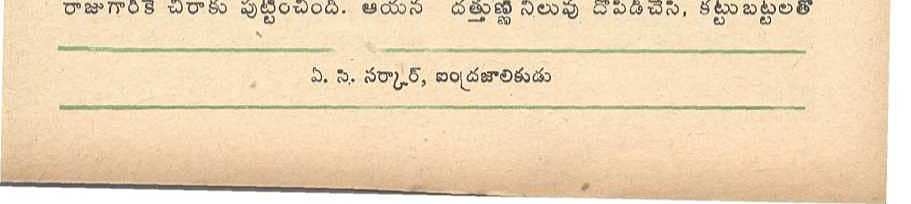 రాజుగారికే చిరాకు పుట్టించింది. ఆయన దత్తుణ్ణి నిలువు దోపిడీచేసి, కట్టుబట్టలతో
ఏ. సి. సర్కార్, ఐంద్రజాలికుడు